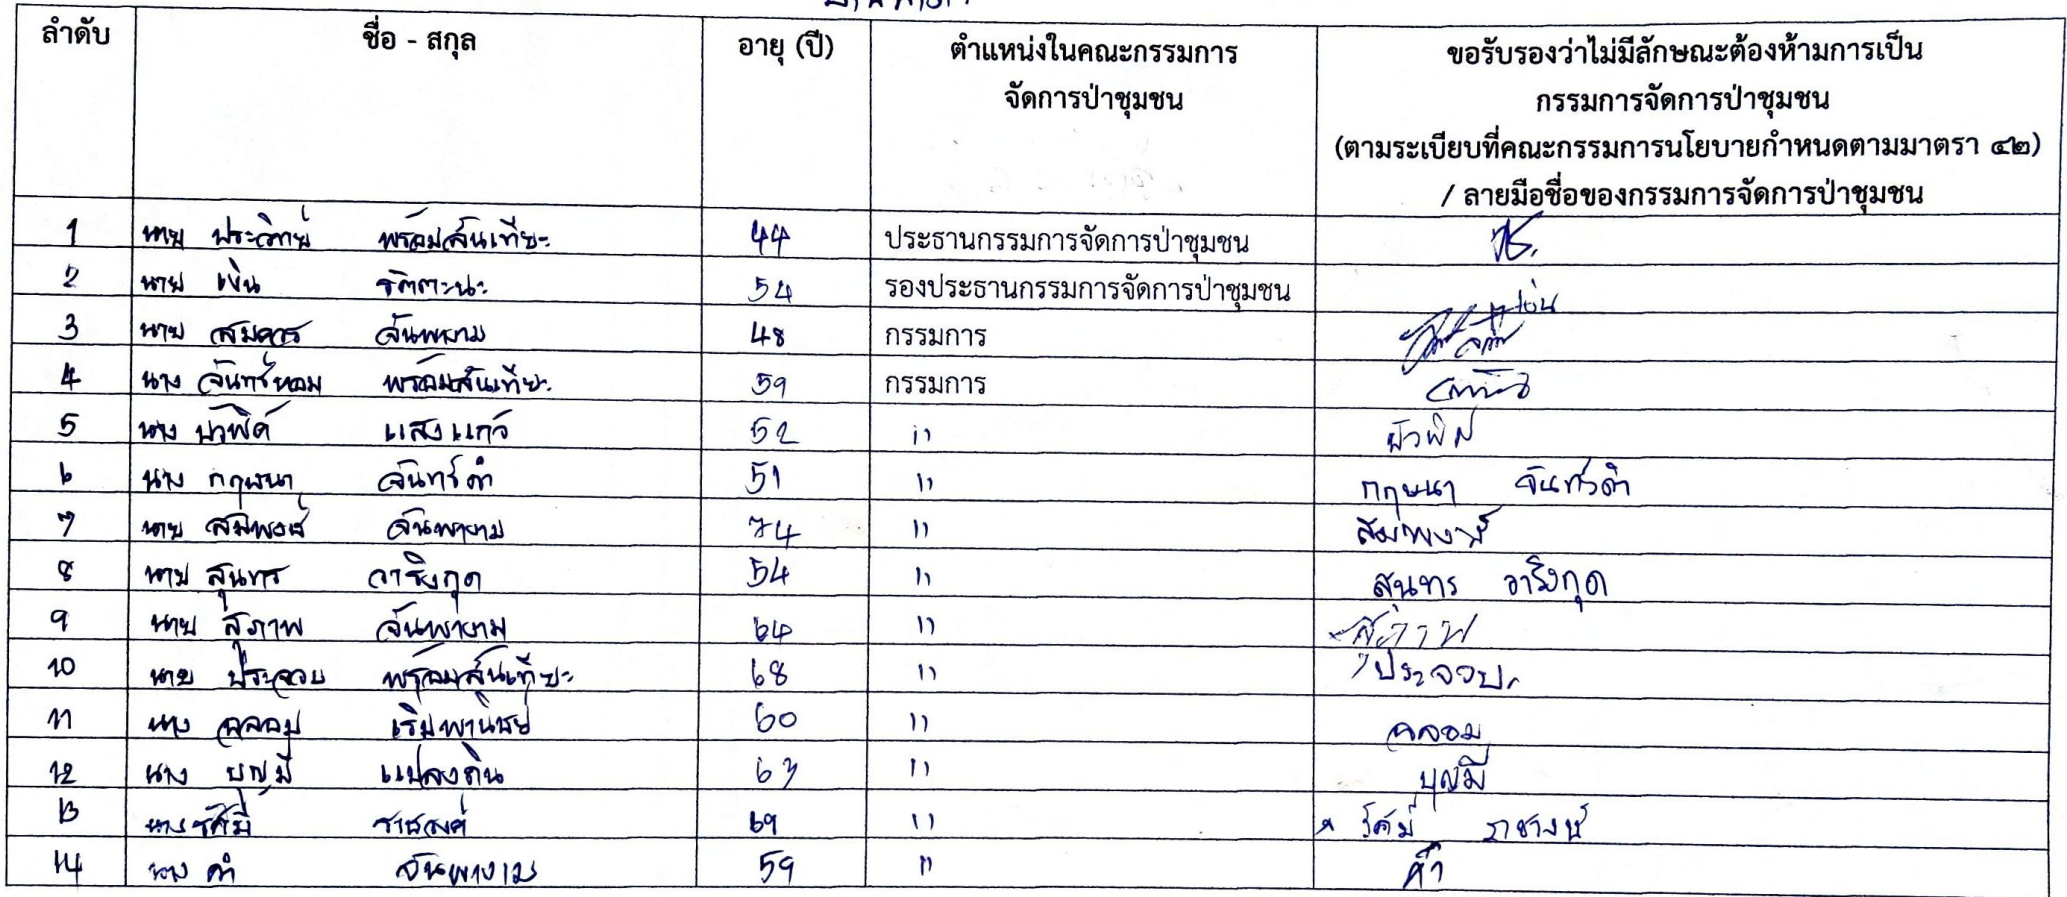 ลำดับ ชื่อ - สกุล อายุ (ปี) ตำแหน่งในคณะกรรมการ ขอรับรองว่าไม่มีลักษณะต้องห้ามการเป็น
จัดการป่าชุมชน กรรมการจัดการป่าชุมชน
(ตามระเบียบที่คณะกรรมการนโยบายกำหนดตามมาตรา ๔๒)
/ ลายมือชื่อของกรรมการจัดการป่าชุมชน
1 นาย ประวิทย์ พร้อมสันเทียะ 44 ประธานกรรมการจัดการป่าชุมชน
2 นาย เงิน รัตตะนะ 54 รองประธานกรรมการจัดการป่าชุมชน เงิน
3 นาย สมควร จันพยาม 48 กรรมการ
4 นาง จันทร์หอม พร้อมสันเทียะ 59 กรรมการ
5 นาง บัวพิศ แสงแก้ว 52 " บัวพิศ
6 นาง กฤษนา จันทร์ดำ 51 " กฤษนา จันทร์ดำ
7 นาย สมพงษ์ จันพายาม 74 " สมพงษ์
8 นาย สุนทร วาริงกุด 54 " สุนทร วาริงกุด
9 นาย สุภาพ จันพายาม 64 " สุภาพ
10 นาย ประจวบ พร้อมสันเทียะ 68 " ประจวบ
11 นาง ฉลอม เริ่มพานิชย์ 60 " ฉลอม
12 นาง บุญมี แปลงดิน 63 " บุญมี
13 นาง รัศมี 69 " รัศมี
14 นาง คำ 59 " คำ